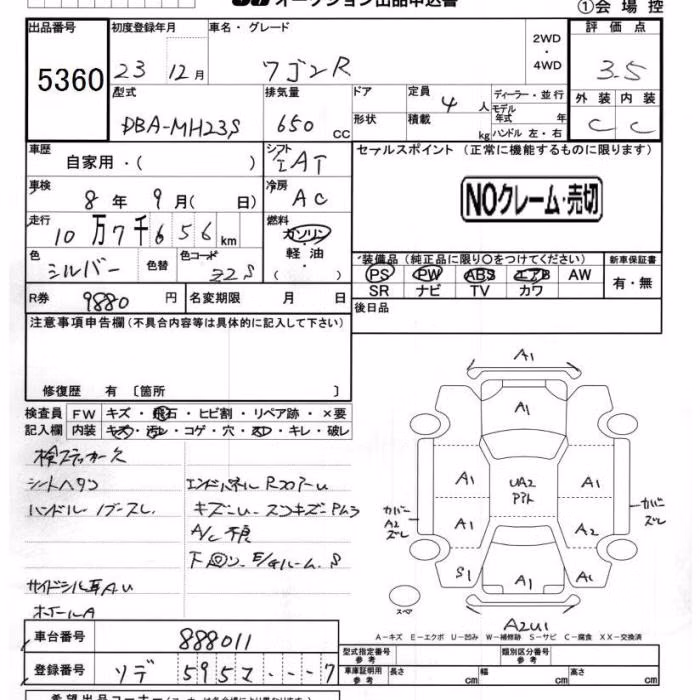 オークション出品申込書
①会場控
出品番号 初度登録年月 車名・グレード 2WD・4WD 評価点
5360 23 12月 ワゴンR 3.5
型式 排気量 ドア 定員 4 人 ディーラー・並行 外装 内装
DBA-MH23S 650 cc 形状 積載 kg モデル年式 年 ハンドル 左・右 C C
車歴 自家用・( ) シフト IAT セールスポイント (正常に機能するものに限ります)
車検 8年 9月( 日) 冷房 AC
NOクレーム・売切
走行 10万7千656km 燃料 ガソリン・軽油・( )
色 シルバー 色替 色コード Z2S
装備品 (純正品に限り○をつけてください) 新車保証書
PS PW ABS エアB AW 有・無
SR ナビ TV カワ
R券 9880円 名変期限 月 日 後日品
注意事項申告欄(不具合内容等は具体的に記入して下さい)
修復歴 有 〔箇所 〕
検査員記入欄 FW キズ・飛石・ヒビ割・リペア跡・×要
内装 キズ・汚レ・コゲ・穴・スレ・キレ・破レ
検ステッカー欠
シートヘタリ エンドパネル
ハンドル キズ
A/C不良
サイドシル AU
ホイールA
A1
A1
A1 UA2 A1
A1 A2
カバーA2ズレ
カバーズレ
S1 A1
スペア
A2U1
A-キズ E-エクボ U-凹み W-補修跡 S-サビ C-腐食 XX-交換済
車台番号 888011
型式指定番号 参考 類別区分番号 参考
登録番号 ソデ 595 7
車庫証明用 参考 長さ cm 幅 cm 高さ cm
希望出品コーナー